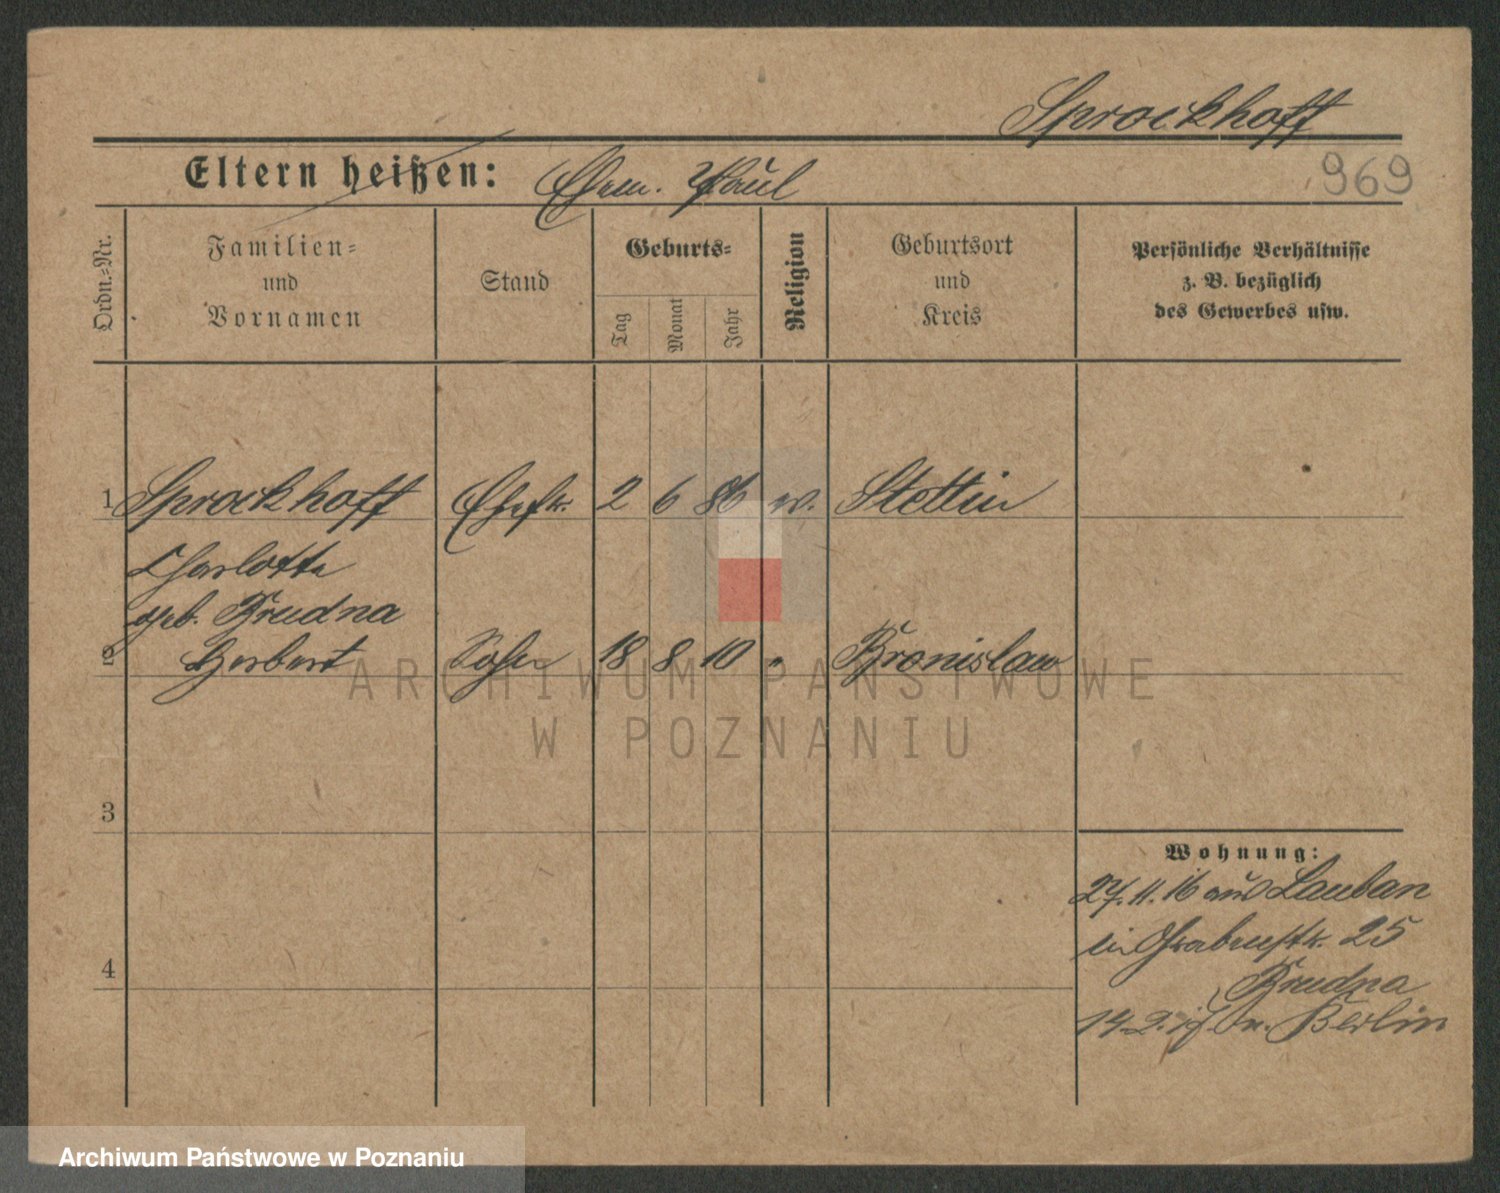 Sprockhoff
Eltern heißen: Ehem. Paul
969
Ordn.-Nr.
Familien-
und
Vornamen
Stand
Geburts-
Tag
Monat
Jahr
Religion
Geburtsort
und
Kreis
Persönliche Verhältnisse
z. B. bezüglich
des Gewerbes usw.
1 Sprockhoff Ehefr. 2 6 86 Stettin
Charlotte
geb. Brudna
2 Herbert Sohn 18 8 10 " Bronislaw
3
4
Wohnung:
27.11.16 aus Lauban
in Grabenstr. 25
Brudna
14.2.17. n. Berlin
ARCHIWUM PAŃSTWOWE
W POZNANIU
Archiwum Państwowe w Poznaniu